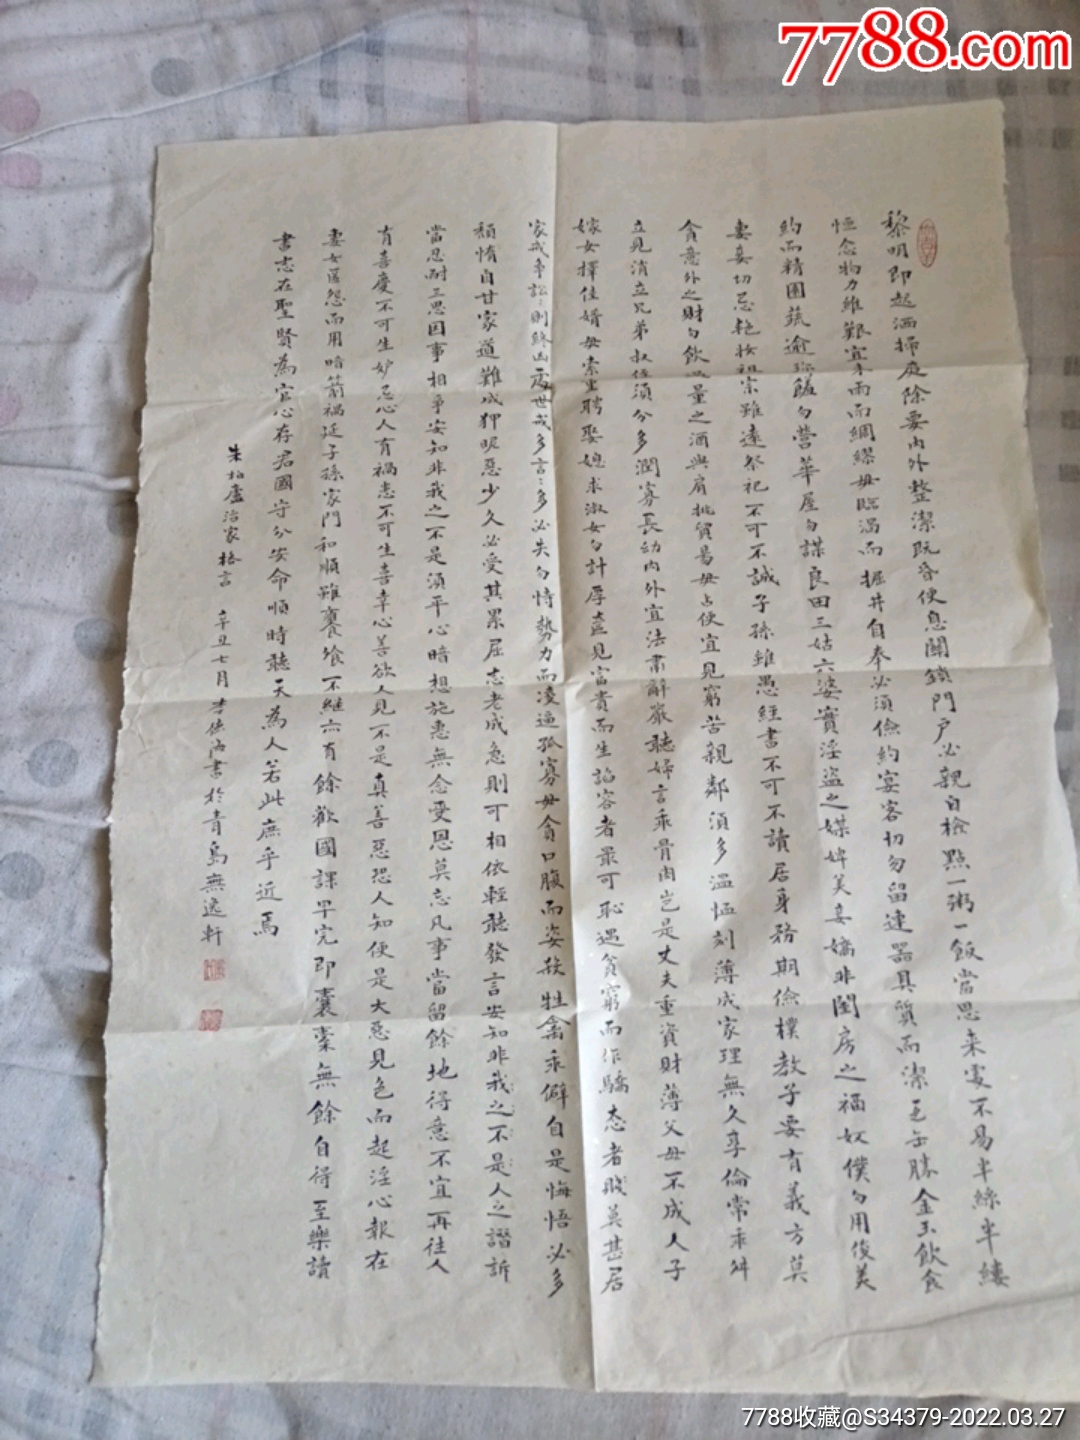 7788.com
黎明即起洒掃庭除要內外整潔既昏便息關鎖門戶必親自檢點一粥一飯當思来處不易半絲半縷
恒念物力維艱宜未雨而綢繆毋臨渴而掘井自奉必須儉約宴客切勿留連器具質而潔瓦缶勝金玉飲食
約而精園蔬逾珍饈勿營華屋勿謀良田三姑六婆實淫盗之媒婢美妾嬌非閨房之福奴僕勿用俊美
妻妾切忌艳妆祖宗雖遠祭祀不可不誠子孫雖愚經書不可不讀居身務期儉樸教子要有義方莫
貪意外之財勿飲過量之酒與肩挑貿易毋占便宜見窮苦親鄰須多温恤刻薄成家理無久享倫常乖舛
立見消立兄弟叔侄須分多潤寡長幼內外宜法肅辭嚴聽婦言乖骨肉岂是丈夫重資財薄父母不成人子
嫁女擇佳婿毋索重聘娶媳求淑女勿計厚奩見富貴而生諂容者最可恥遇貧窮而作驕态者賤莫甚居
家戒争訟：則終凶處世戒多言：多必失勿恃勢力而凌逼孤寡毋貪口腹而姿殺牲禽乖僻自是悔悟必多
頹惰自甘家道難成狎昵惡少久必受其累屈志老成急則可相依輕聽發言安知非我之不是人之譖訴
當忍耐三思因事相爭安知非我之不是須平心暗想施惠無念受恩莫忘凡事當留餘地得意不宜再往人
有喜慶不可生妒忌心人有禍患不可生喜幸心善欲人見不是真善惡恐人知便是大惡見色而起淫心報在
妻女匿怨而用暗箭禍延子孫家門和順雖饔飧不繼亦有餘歡國課早完即囊橐無餘自得至樂讀
書志在聖賢為官心存君國守分安命順時聽天為人若此庶乎近焉
朱柏廬治家格言 辛丑七月李德海書於青島無逸軒
7788收藏@S34379-2022.03.27